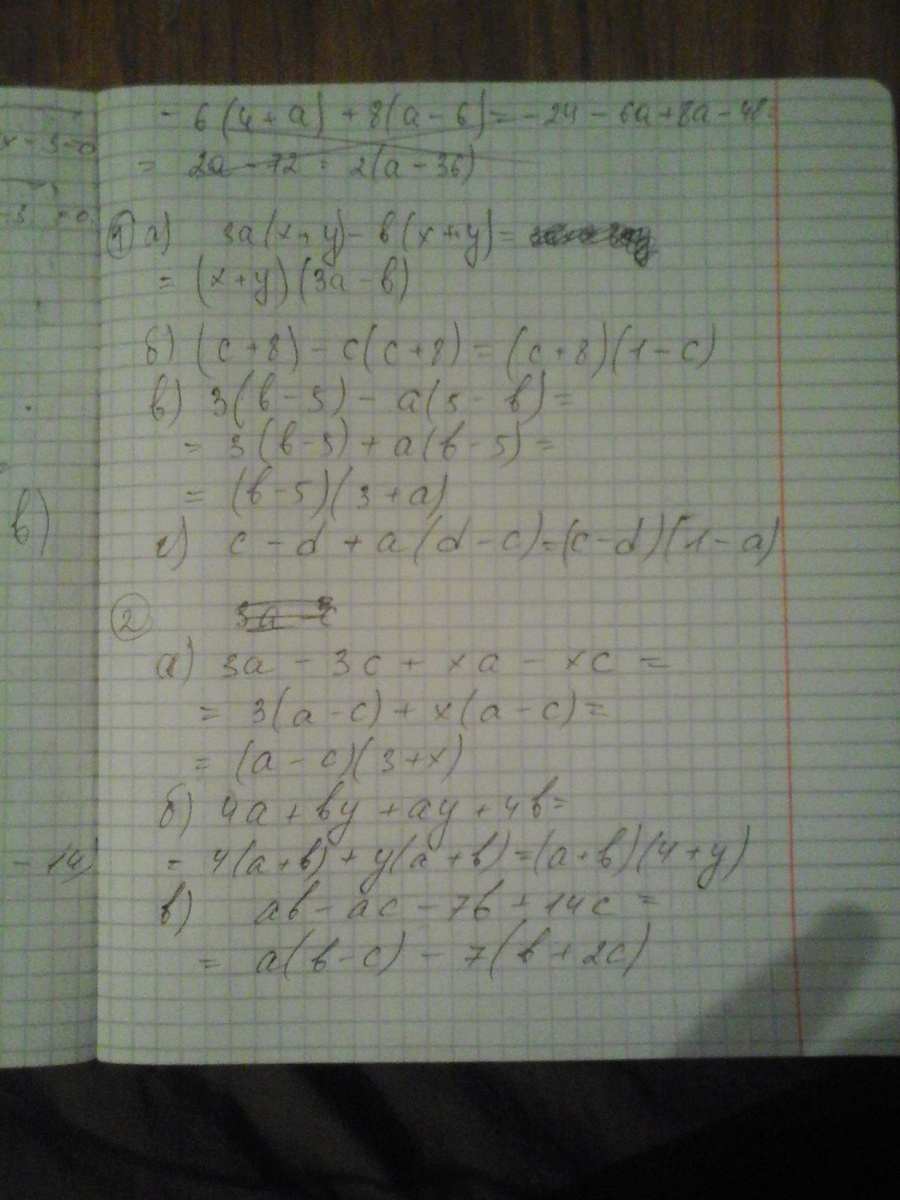 - 6(4+a) + 8(a-6) = -24 - 6a + 8a - 48 =
= 2a - 72 = 2(a - 36)
① а) 3a(x+y) - b(x+y) =
= (x+y)(3a - b)
б) (c+8) - c(c+8) = (c+8)(1-c)
в) 3(b-5) - a(5-b) =
= 3(b-5) + a(b-5) =
= (b-5)(3+a)
г) c - d + a(d-c) = (c-d)(1-a)
②
а) 3a - 3c + xa - xc =
= 3(a-c) + x(a-c) =
= (a-c)(3+x)
б) 4a + by + ay + 4b =
= 4(a+b) + y(a+b) = (a+b)(4+y)
в) ab - ac - 7b + 14c =
= a(b-c) - 7(b+2c)
в)
- 14)